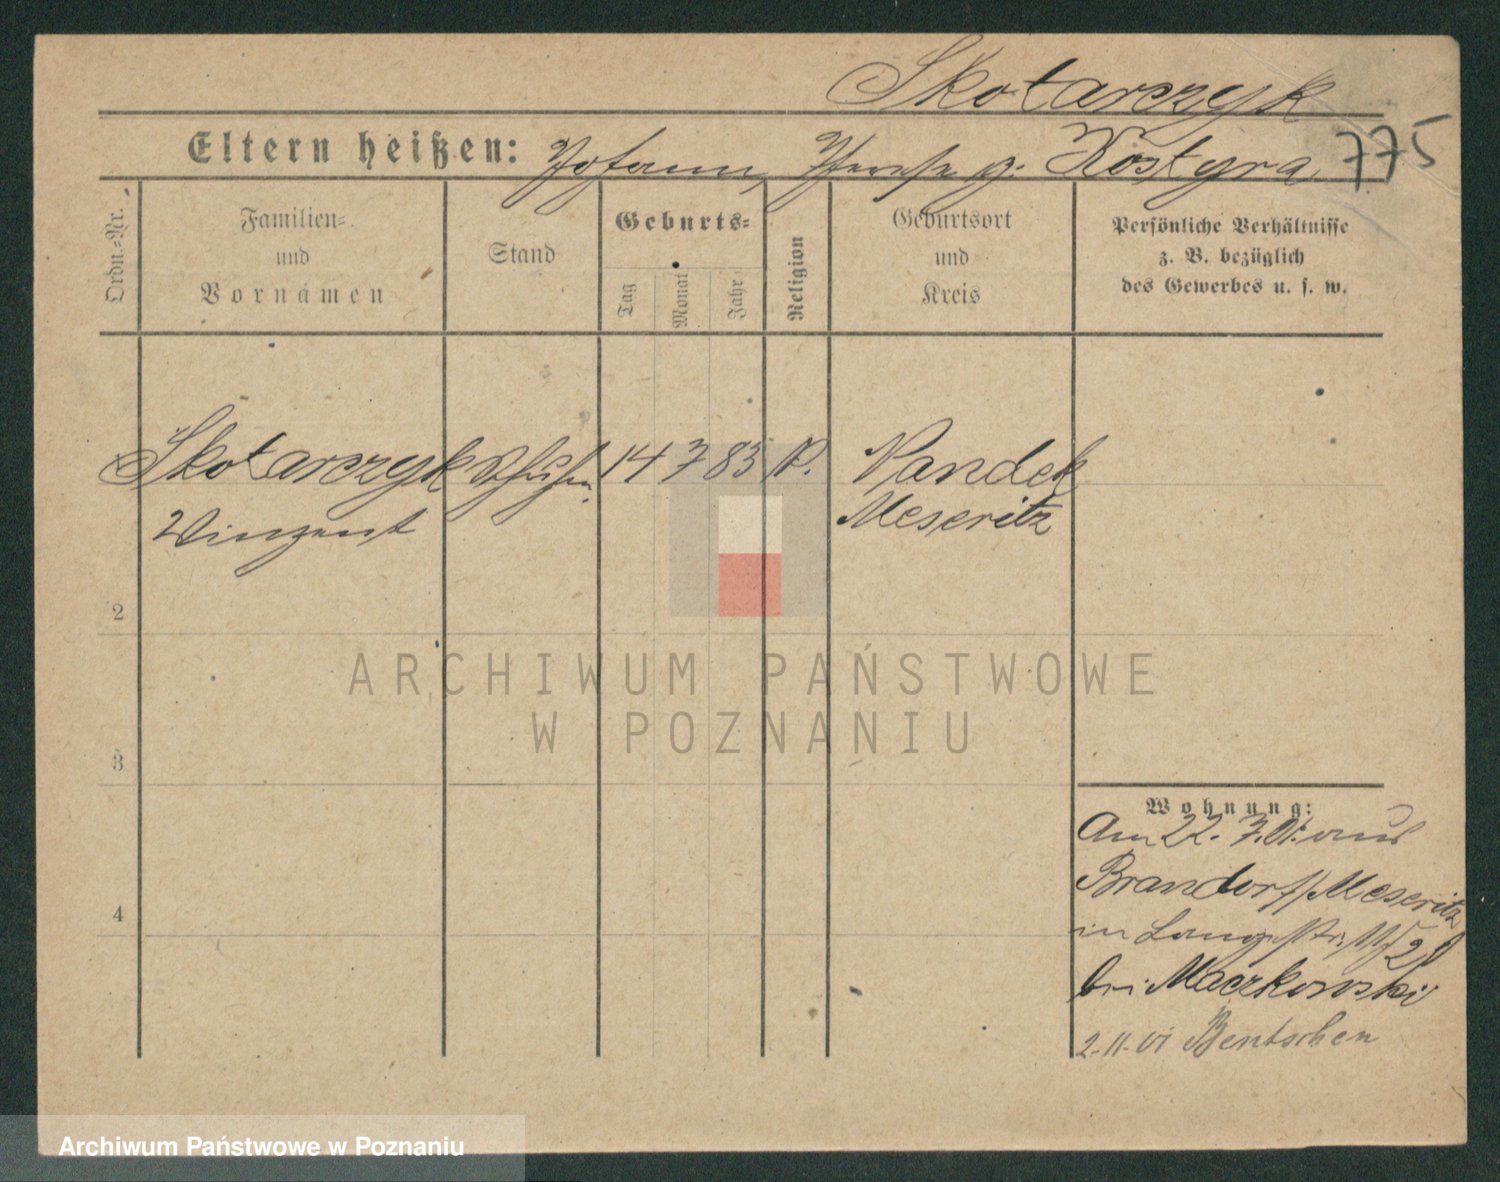 Skotarczyk
Eltern heißen: Johann, Therese g. Kostyra 775
Ordn.=Nr.
Familien=
und
Vornamen
Stand
Geburts=
Tag
Monat
Jahr
Religion
Geburtsort
und
Kreis
Persönliche Verhältnisse
z. B. bezüglich
des Gewerbes u. s. w.
Skotarczyk 14 7 83 K. Nandek
Winzent Meseritz
2
ARCHIWUM PAŃSTWOWE
W POZNANIU
3
Wohnung:
Am 22. 7. 01. aus
Brandorf/Meseritz
4
in Langestr.
bei Maczkowski
2.11.01 Bentschen
Archiwum Państwowe w Poznaniu